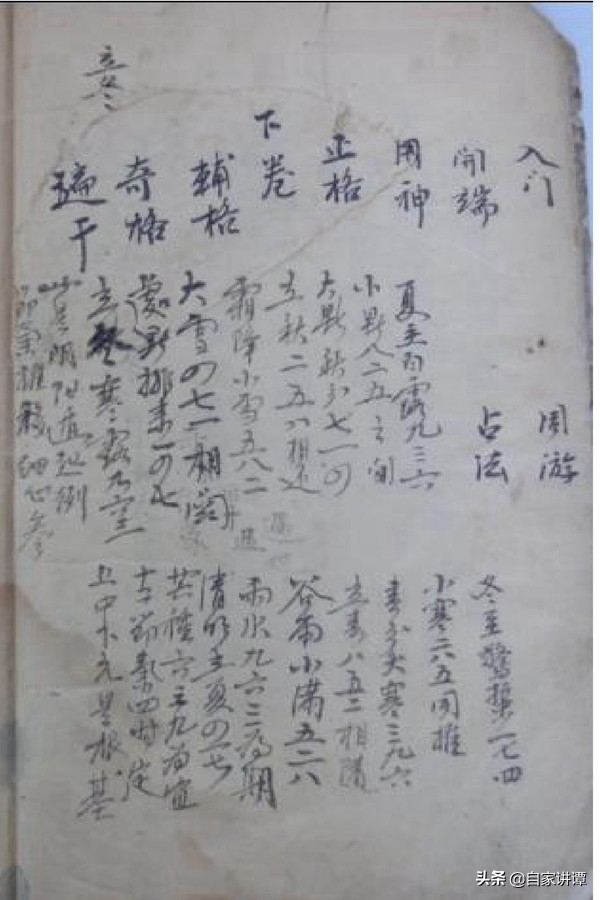 入门
開端
用神
正格
下卷
輔格
奇格
遁干
立冬
周游
占法
夏至白露九三六
小暑八二五之间
大暑秋分七一四
立秋二五八相还
霜降小雪五八二
大雪四七一相関
處暑排来一四七
立冬寒露
此是阴阳遁起例
節氣推移细心参
冬至驚蟄一七四
小寒二八五同推
春分大寒三九六
立春八五二相隨
谷雨小满五二八
雨水九六三為期
清明立夏四一七
芒種六三九為宜
節氣四时定
上中下元是根基
头条 @自家讲谭